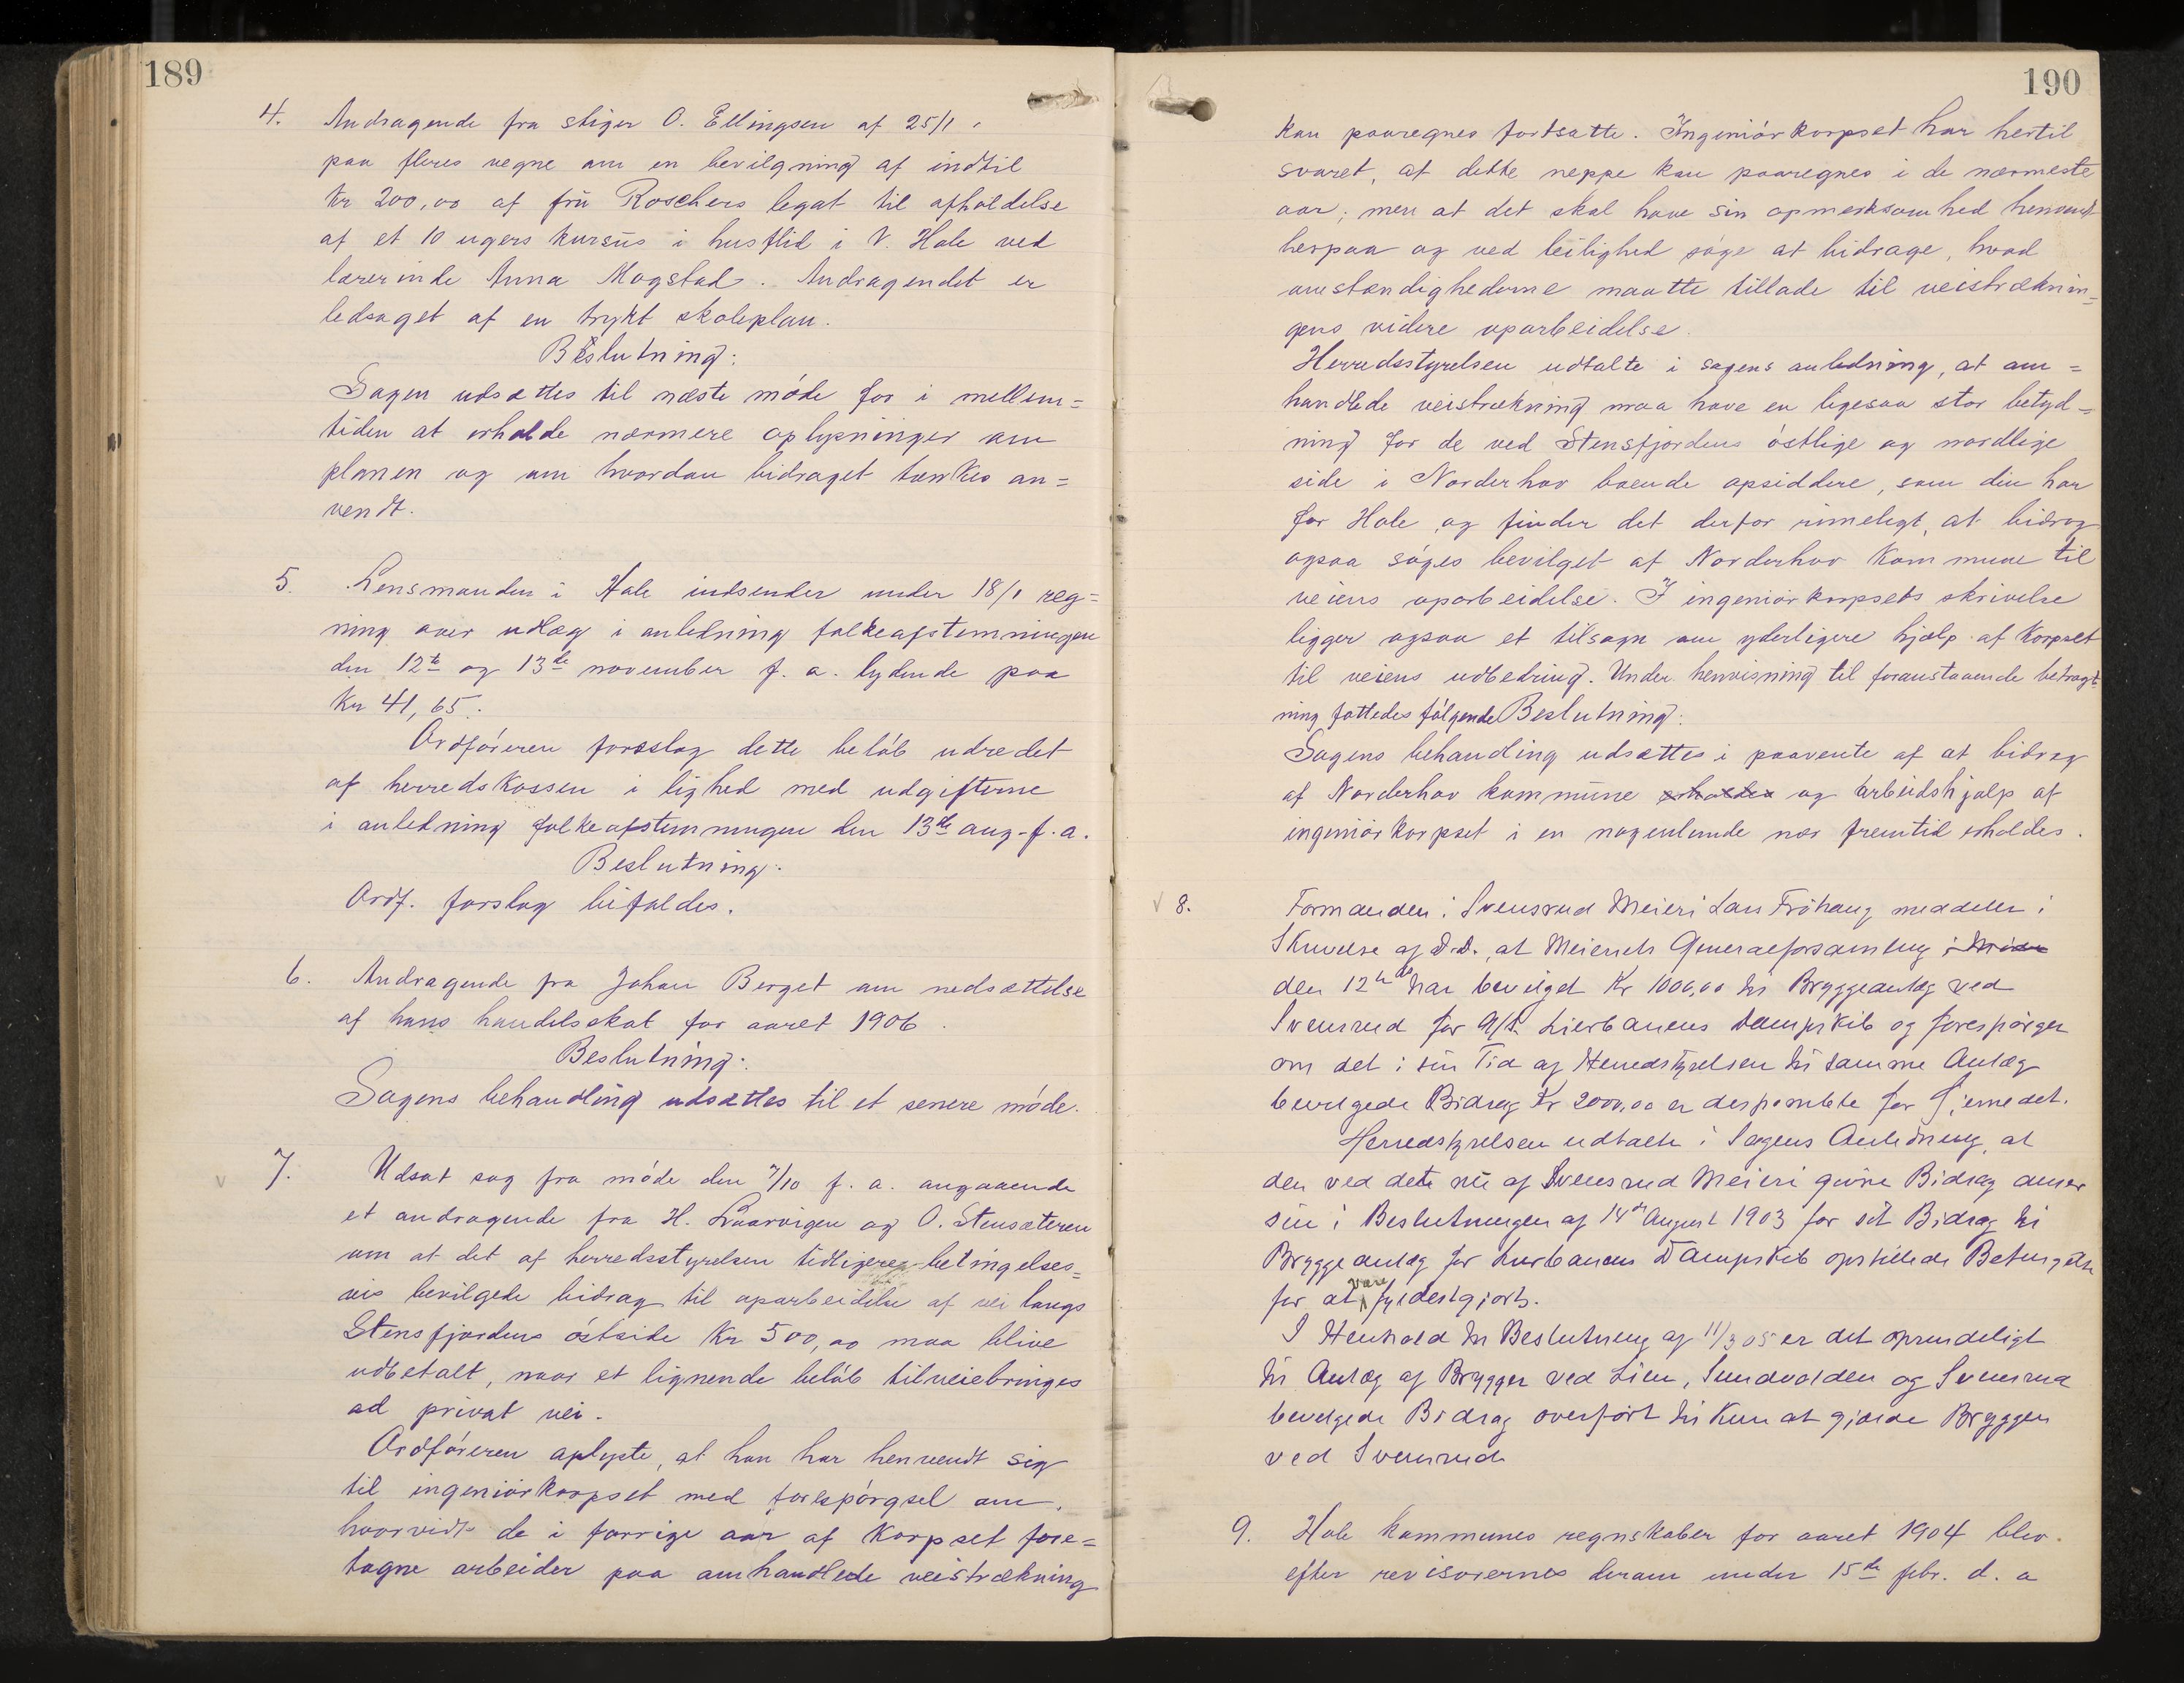 189
4. Andragende fra stiger O. Ellingsen af 25/1
paa fleres vegne om en bevilgning af indtil
Kr 200,00 af frü Roschers legat til afholdelse
af et 10 ugers kursüs i husflid i V. Hole ved
lærerinde Anna Mogstad. Andragendet er
ledsaget af en trykt skoleplan.
Beslutning:
Sagen udsættes til næste møde for i mellem=
tiden at erholde nærmere oplysninger om
planen og om hvordan bidraget tænkes an=
vendt.
5. Lensmanden i Hole indsender under 18/1 reg=
ning over udlæg i anledning folkeafstemningen
den 12te og 13de november f. a. lydende paa
Kr 41,65.
Ordføreren foreslog dette beløb udredet
af herredskassen i lighed med udgifterne
i anledning folkeafstemningen den 13de aug. f. a.
Beslutning:
Ordf. forslag bifaldes.
6. Andragende fra Johan Berget om nedsættelse
af hans handelsskat for aaret 1906.
Beslutning:
Sagens behandling udsættes til et senere møde.
7. Udsat sag fra møde den 7/10 f. a. angaaende
et andragende fra H. Loorvigen og O. Stensæteren
om at det af herredsstyrelsen tidligere betingelses=
vis bevilgede bidrag til oparbeidelse af vei langs
Stensfjordens østside Kr 500,00 maa blive
udbetalt, naar et lignende beløb tilveiebringes
ad privat vei.
Ordføreren oplyste, at han har henvendt sig
til ingeniørkorpset med forespørgsel om,
hvorvidt de i forrige aar af Korpset fore=
tagne arbeider paa omhandlede veistrækning
190
kan paaregnes fortsatte. Ingeniørkorpset har hertil
svaret, at dette neppe kan paaregnes i de nærmeste
aar; men at det skal have sin opmerksomhed henvendt
herpaa og ved leilighed søge at bidrage, hvad
omstændighederne maatte tillade til veistræknin=
gens videre oparbeidelse.
Herredsstyrelsen udtalte i sagens anledning, at om=
handlede veistrækning maa have en ligesaa stor betyd=
ning for de ved Stensfjordens østlige og nordlige
side i Norderhov boende opsiddere, som den har
for Hole, og finder det derfor rimeligt, at bidrag
ogsaa søges bevilget af Norderhov Kommune til
veiens oparbeidelse. I ingeniørkorpsets skrivelse
ligger ogsaa et tilsagn om yderligere hjælp af Korpset
til veiens udbedring. Under henvisning til foranstaaende betragt=
ning fattedes følgende Beslutning:
Sagens behandling udsættes i paavente af at bidrag
af Norderhov kommüne erholdes og arbeidshjælp af
ingeniørkorpset i en nogenlunde nær fremtid erholdes.
8. Formanden i Svensrud Meieri Lars Frøhaug meddeler i
Skrivelse af D.D., at Meieriets Generalforsamling
den 12te ds har bevilget Kr 1000,00 til Bryggeanlæg ved
Svensrud for A/S Lierbanens Dampskib og forespørger
om det i sin Tid af Herredstyrelsen til samme Anlæg
bevilgede Bidrag Kr 2000,00 er disponible for Øiemedet.
Herredstyrelsen udtalte i Sagens Anledning, at
den ved dete nü af Svensrud Meieri givne Bidrag anser
sin i Beslutningen af 14de August 1903 for sit Bidrag til
Bryggeanlæg for Lierbanens Dampskib opstillede Betingelse
for at være fyldestgjort.
I Henhold til Beslutning af 11/3 05 er det oprindeligt
til Anlæg af Brygger ved Lien, Sundvolden og Svensrud
bevilgede Bidrag overført til kun at gjælde Bryggen
ved Svensrud
9. Hole kommunes regnskaber for aaret 1904 blev
efter revisorernes derom under 15de febr. d. a